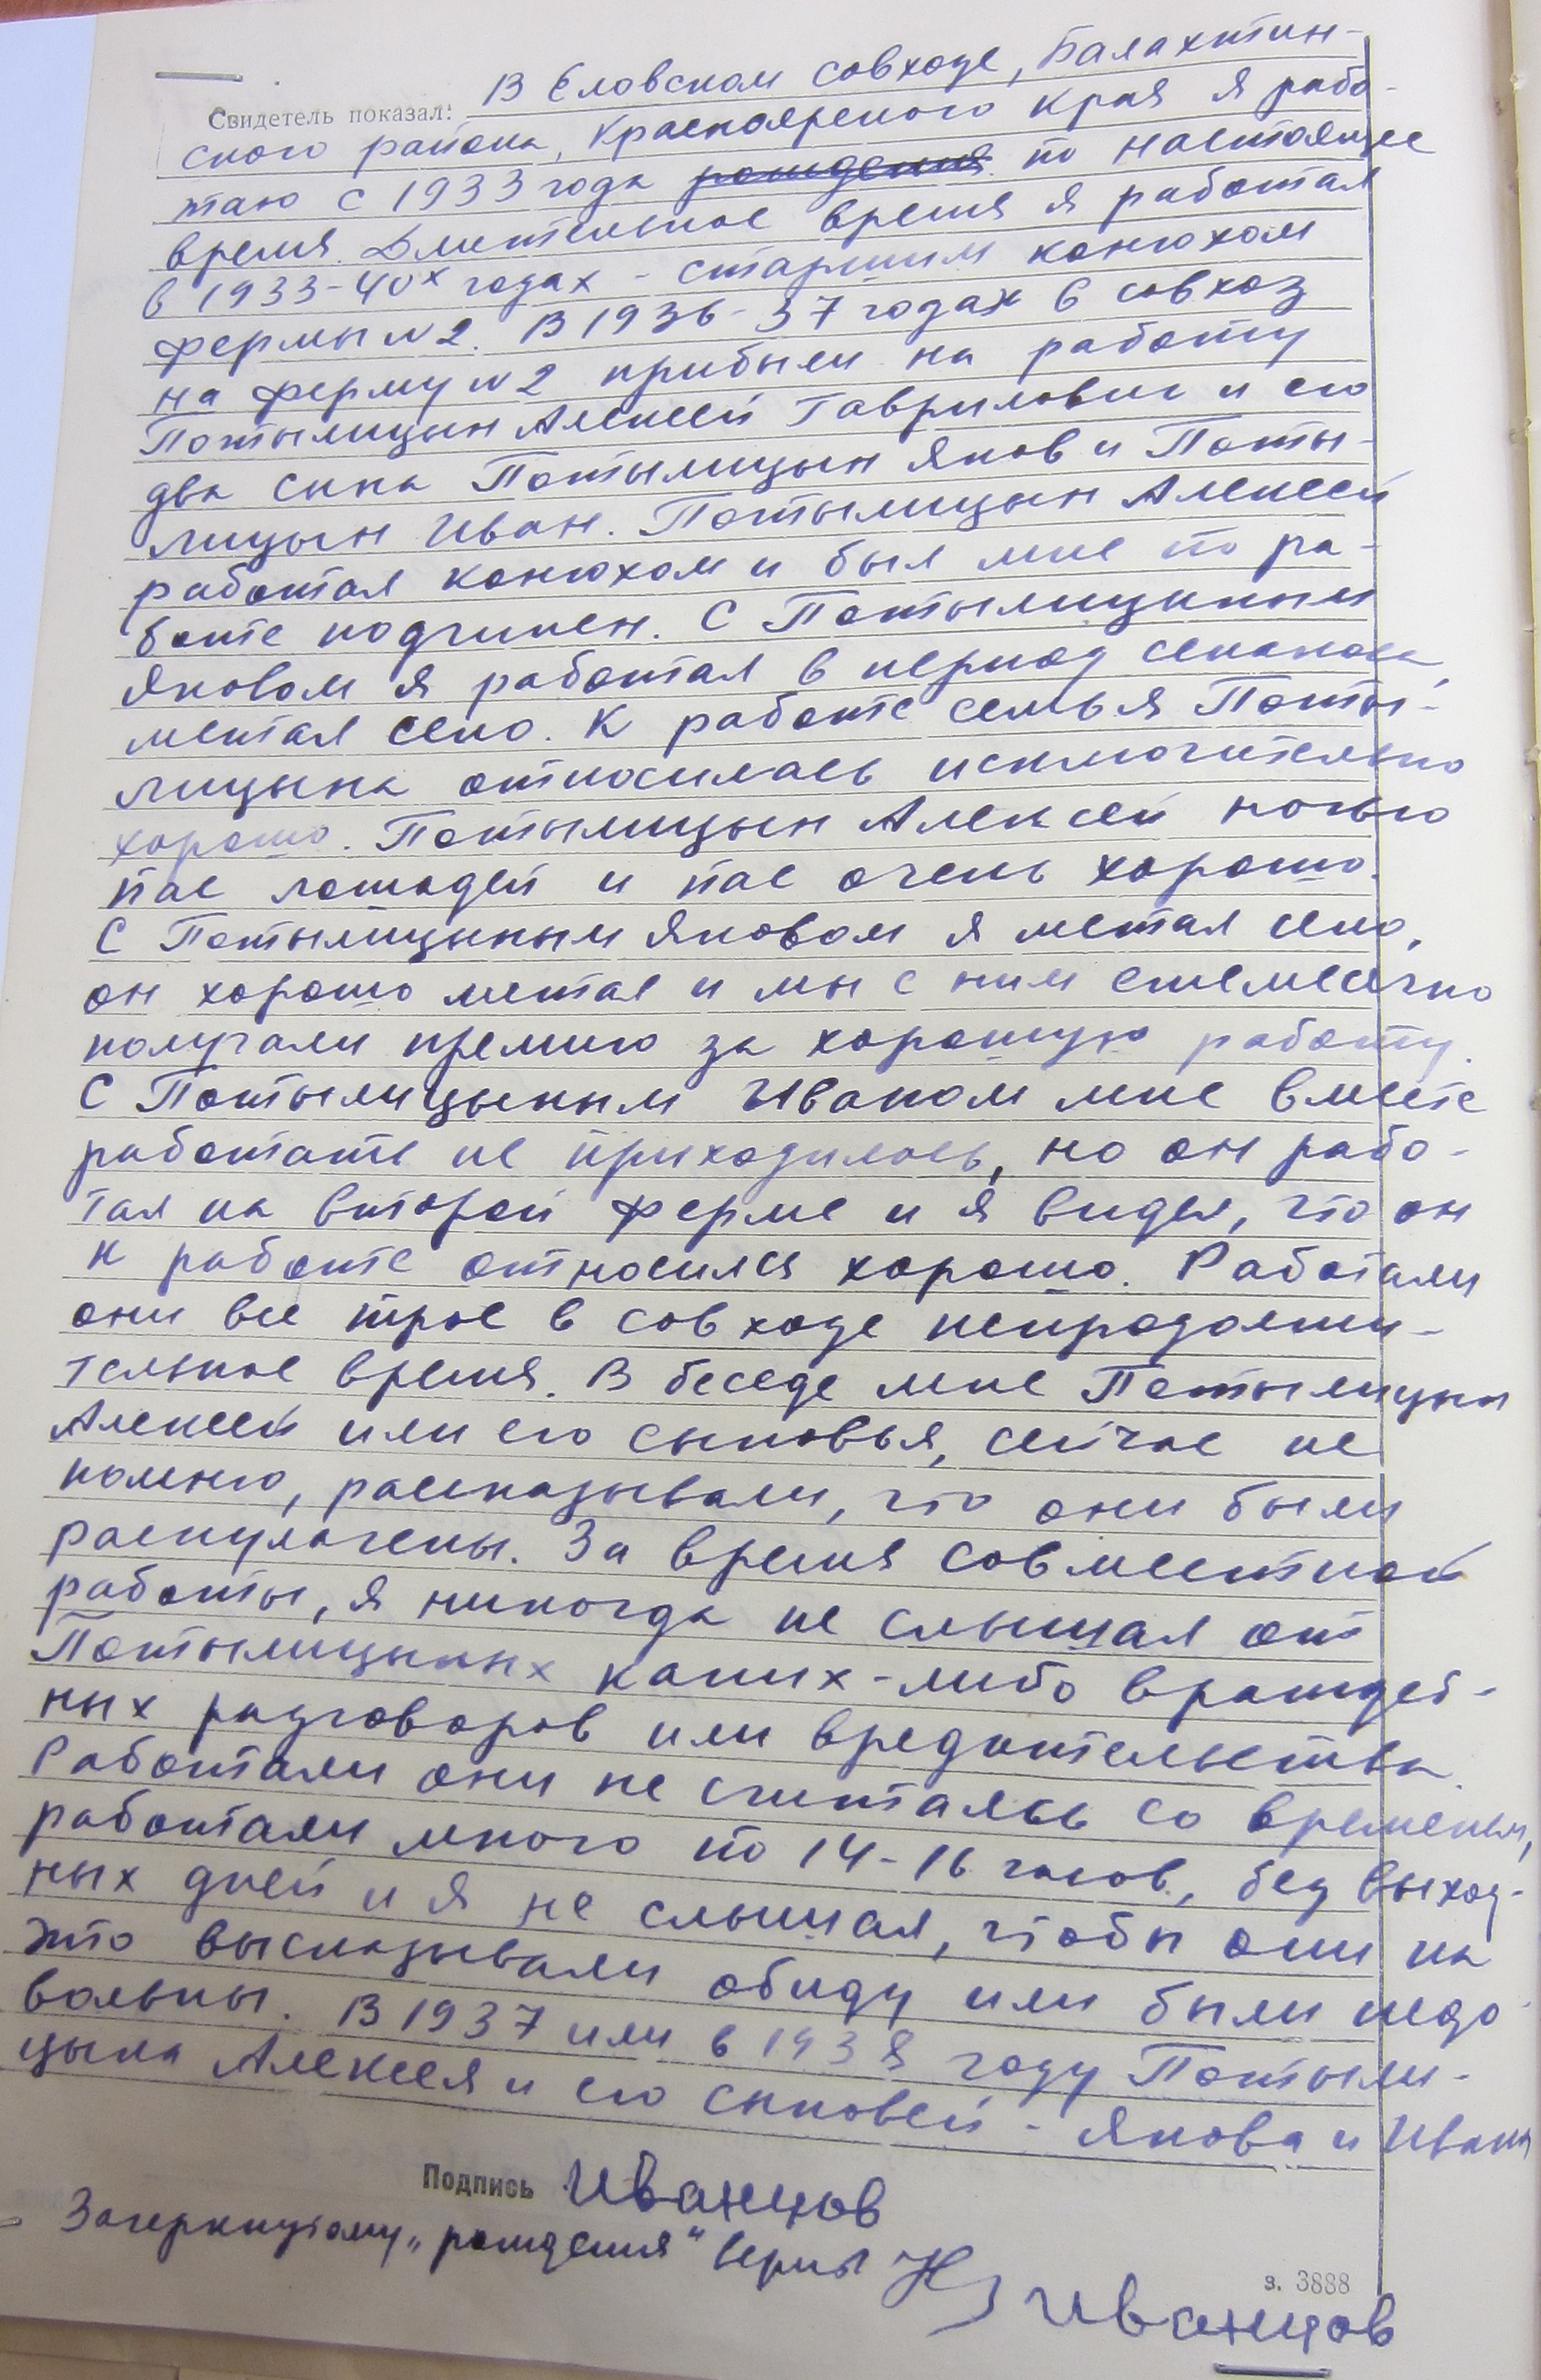 Свидетель показал: В Еловском совхозе, Балахтин-
ского района, Красноярского края я рабо-
таю с 1933 года рождения по настоящее
время. Длительное время я работал
в 1933-40х годах - старшим конюхом
фермы N2. В 1936-37 годах в совхоз
на ферму N2 прибыли на работу
Потылицын Алексей Гаврилович и его
два сына Потылицын Яков и Поты-
лицын Иван. Потылицын Алексей
работал конюхом и был мне по ра-
боте подчинен. С Потылицыным
Яковом я работал в период сенокоса,
метал сено. К работе семья Поты-
лицына относилась исключительно
хорошо. Потылицын Алексей ночью
пас лошадей и пас очень хорошо.
С Потылицыным Яковом я метал сено,
он хорошо метал и мы с ним ежемесячно
получали премию за хорошую работу.
С Потылицыным Иваном мне вместе
работать не приходилось, но он рабо-
тал на второй ферме и я видел, что он
к работе относился хорошо. Работали
они все трое в совхозе непродолжи-
тельное время. В беседе мне Потылицын
Алексей или его сыновья, сейчас не
помню, рассказывали, что они были
раскулачены. За время совместной
работы, я никогда не слышал от
Потылицыных каких-либо враждеб-
ных разговоров или вредительства.
Работали они не считаясь со временем,
работали много по 14-16 часов, без выход-
ных дней и я не слышал, чтобы они на
это высказывали обиду или были недо-
вольны. В 1937 или в 1938 году Потыли-
цына Алексея и его сыновей - Якова и Ивана
Подпись Иванцов
Зачеркнутому „рождения" верить
з. 3888
Иванцов